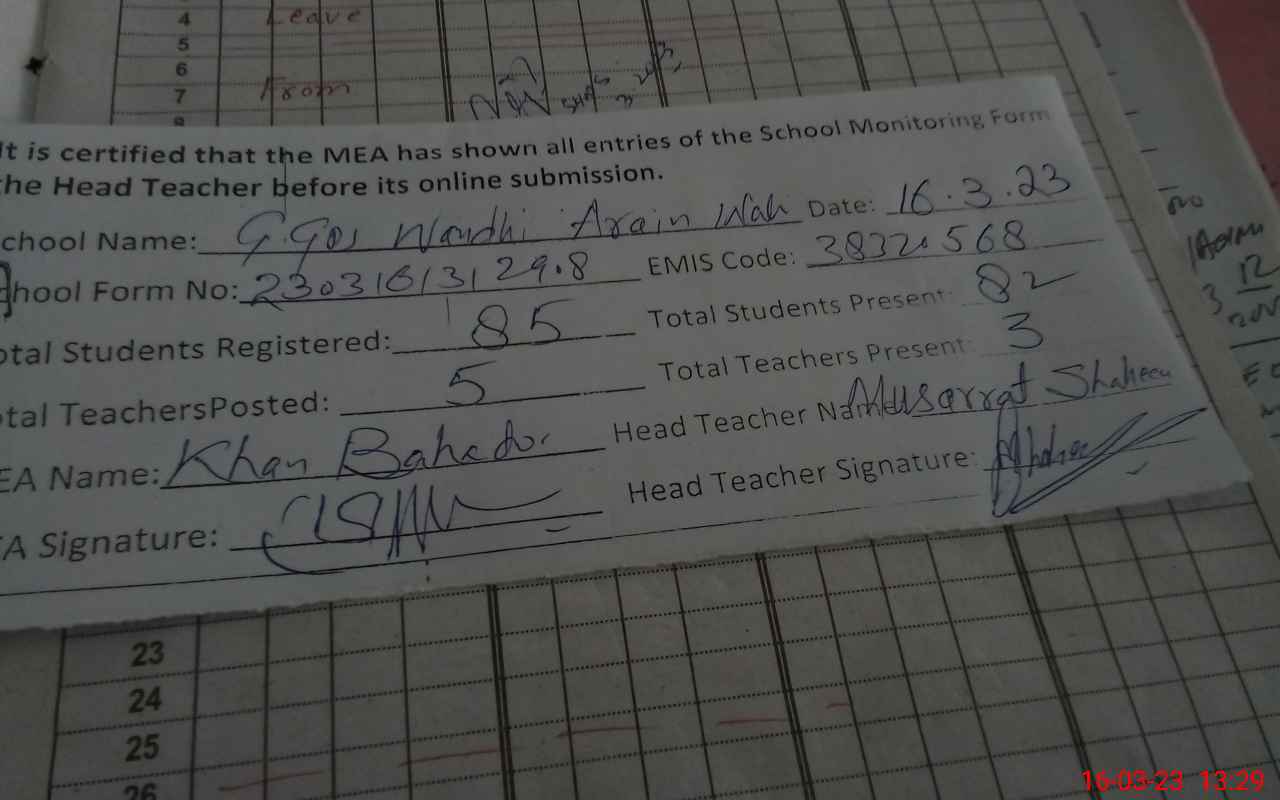 4 Leave
5
6
7 From
It is certified that the MEA has shown all entries of the School Monitoring Form
the Head Teacher before its online submission.
chool Name: G.Ges Wandhi Arain Wah Date: 16.3.23
hool Form No: 23031613129.8 EMIS Code: 38320568
otal Students Registered: 85 Total Students Present: 82
tal TeachersPosted: 5 Total Teachers Present: 3
EA Name: Khan Bahador Head Teacher Name Musarrat Shaheen
EA Signature: Head Teacher Signature:
23
24
25
26
16-03-23 13:29